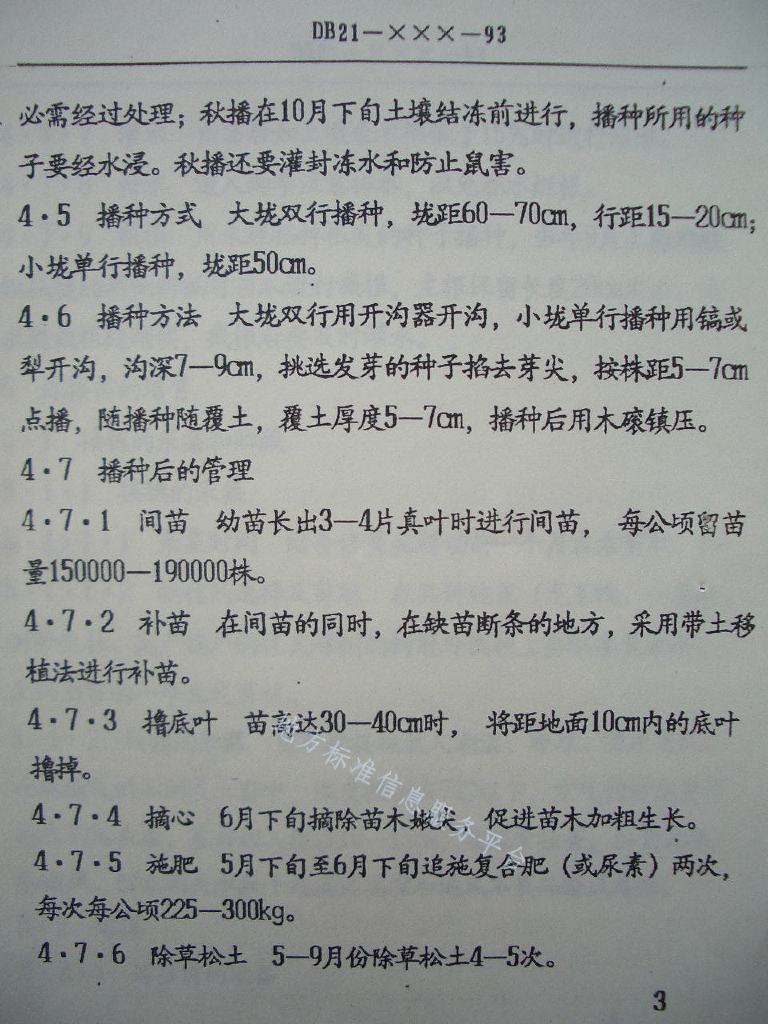 DB21—×××—93
必需经过处理；秋播在10月下旬土壤结冻前进行，播种所用的种
子要经水浸。秋播还要灌封冻水和防止鼠害。
4·5 播种方式 大垅双行播种，垅距60—70cm，行距15—20cm；
小垅单行播种，垅距50cm。
4·6 播种方法 大垅双行用开沟器开沟，小垅单行播种用镐或
犁开沟，沟深7—9cm，挑选发芽的种子掐去芽尖，按株距5—7cm
点播，随播种随覆土，覆土厚度5—7cm，播种后用木磙镇压。
4·7 播种后的管理
4·7·1 间苗 幼苗长出3—4片真叶时进行间苗，每公顷留苗
量150000—190000株。
4·7·2 补苗 在间苗的同时，在缺苗断条的地方，采用带土移
植法进行补苗。
4·7·3 撸底叶 苗高达30—40cm时，将距地面10cm内的底叶
撸掉。
4·7·4 摘心 6月下旬摘除苗木嫩尖，促进苗木加粗生长。
4·7·5 施肥 5月下旬至6月下旬追施复合肥（或尿素）两次，
每次每公顷225—300kg。
4·7·6 除草松土 5—9月份除草松土4—5次。
3
地方标准信息服务平台